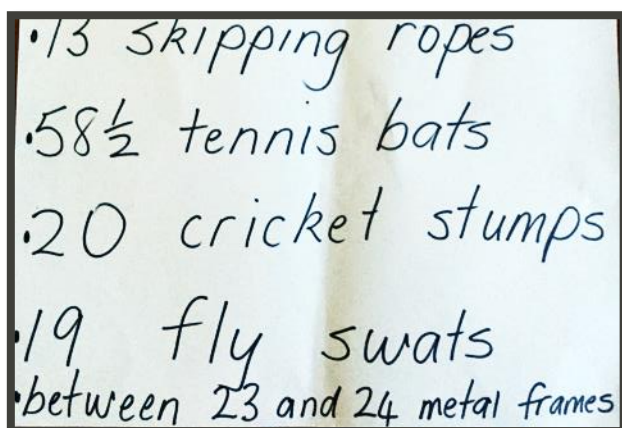 •13 skipping ropes
•58½ tennis bats
•20 cricket stumps
•19 fly swats
•between 23 and 24 metal frames